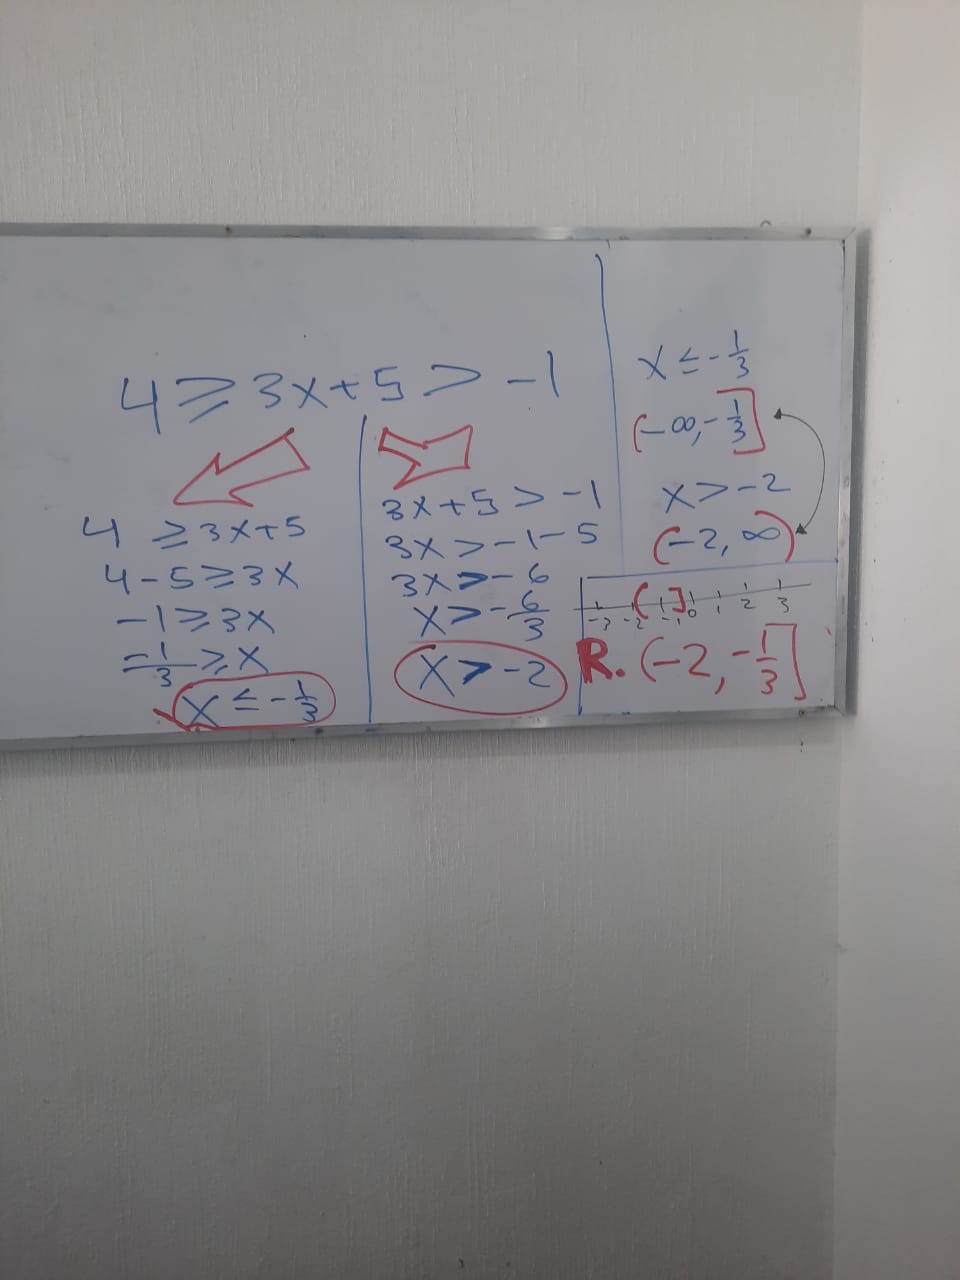 4 ≥ 3x+5 > -1
4 ≥ 3x+5
4-5 ≥ 3x
-1 ≥ 3x
-1/3 ≥ x
x ≤ -1/3
3x+5 > -1
3x > -1-5
3x > -6
x > -6/3
x > -2
x ≤ -1/3
(-∞, -1/3]
x > -2
(-2, ∞)
( ]
-3 -2 -1 0 1 2 3
R. (-2, -1/3]